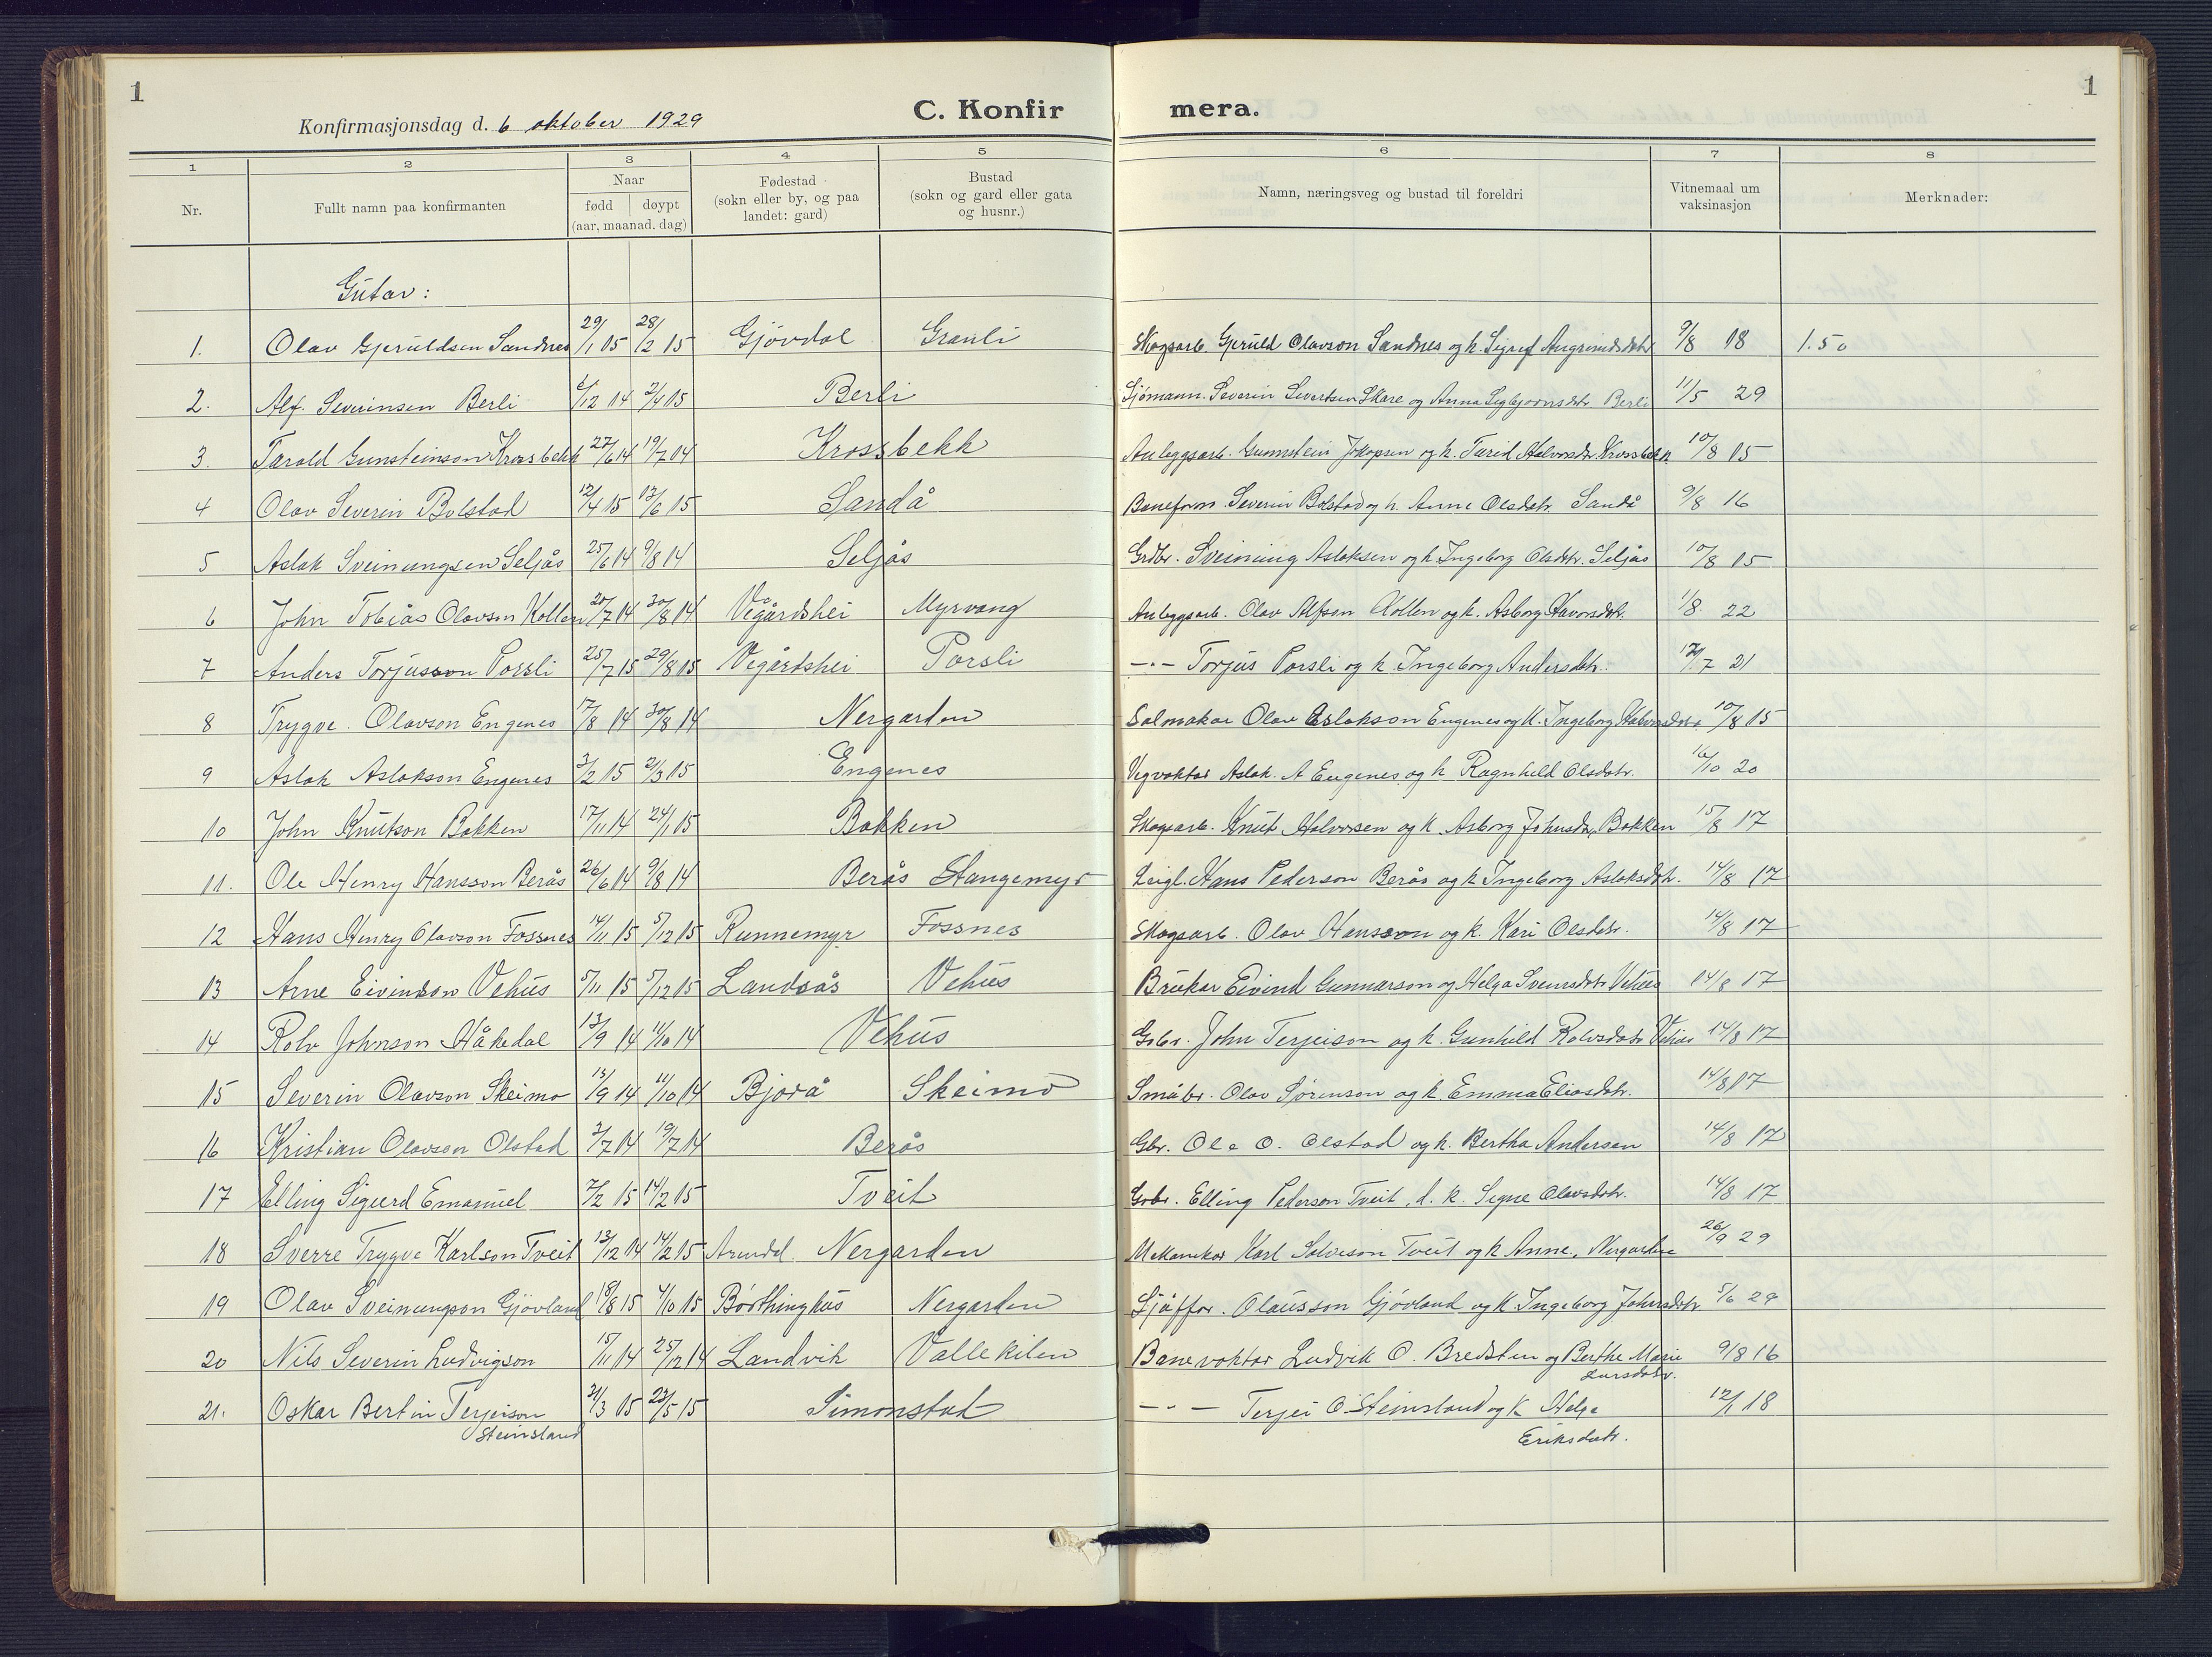 1
C. Konfir mera.
1
Konfirmasjonsdag d. 6 oktober 1929
1 2 3 4 5 6 7 8
Nr.
Fullt namn paa konfirmanten
Naar
født døypt
(aar, maanad. dag)
Fødestad
(sokn eller by, og paa
landet: gard)
Bustad
(sokn og gard eller gata
og husnr.)
Namn, næringsveg og bustad til foreldri
Vitnemaal um
vaksinasjon
Merknader:
Gutar:
1. Olav Gjeruldsen Sandnes 29/1 15 28/2 15 Gjövdal Granli Skogsarb. Gjeruld Olavson Sandnes og k. Sigrid 9/8 18 1.50
2. Alf. Severinsen Berli 6/12 14 2/4 15 Berli Sjömann. Severin Sivertsen Skare og Anna Berli 11/5 29
3. Tarald Gunsteinson Krossbekk 27/6 14 19/7 14 Krossbekk Anleggsarb. Gunnstein og k. Turid Halvorsdr. Krossbekk 10/8 15
4 Olav Severin Bolstad 12/4 15 13/6 15 Sandå Baneform Severin Bolstad og k. Anne Olsdatr. Sandå 9/8 16
5 Aslak Sveinungsen Seljås 25/6 14 9/8 14 Seljås Grdbr. Sveinung Aslaksen og k Ingeborg Olsdtr. Seljås 10/8 15
6 John Tobias Olavson Kollen 20/7 14 30/8 14 Vegårdshei Myrvang Anleggsarb. Olav Alfson Kollen og k. Asborg 1/8 22
7 Anders Torjusson Porsli 25/7 15 29/8 15 Vegårdshei Porsli -"- Torjus Porsli og k Ingeborg Andersdtr. /7 21
8 Trygve Olavson Engenes 17/8 14 30/8 14 Nergarden Salmakar Olav Aslakson Engenes og k. Ingeborg Halvorsdtr 10/8 15
9 Aslak Aslakson Engenes 3/2 15 21/3 15 Engenes Vegvaktar Aslak. A Engenes og k Ragnhild Olsdatr. 16/10 20
10 John Knutson Bakken 17/11 14 24/1 15 Bakken Skogsarb. Knut Halvorsen og k Asborg Johnsdr, Bakken 15/8 17
11. Ole Henry Hansson Berås 26/6 14 9/8 14 Berås Stangemyr Leigl. Hans Pederson Berås og k Ingeborg Aslaksdtr. 14/8 17
12 Hans Henry Olavson Fossnes 14/11 15 5/12 15 Runnemyr Fossnes Skogsarb. Olav Hansson og k. Kari Olsdtr. 14/8 17
13 Arne Eivindson Vehus 5/11 15 5/12 15 Landsås Vehus Brukar Eivind Gunnarson og Helga Vehus 14/8 17
14 Rolv Johnson Håkedal 13/9 14 11/10 14 Vehus Grbr. John Terjeison og k. Gunhild Rolvsdatr Vehus 14/8 17
15 Severin Olavson Skeimo 13/9 14 11/10 14 Bjorå Skeimo Småbr. Olav Sørenson og k. Emma Eliasdtr. 14/8 17
16 Kristian Olavson Olstad 3/7 14 19/7 14 Berås Gbr. Ole O. Olstad og k. Bertha Andersen 14/8 17
17 Elling Sigurd Emanuel 7/2 15 14/2 15 Tveit Grbr. Elling Pederson Tveit, d. k. Signe Olavsdtr. 14/8 17
18 Sverre Trygve Karlson Tveit 13/12 14 14/2 15 Arendal Nergarden Mekanikar Karl Salveson Tveit og k Anne, Nergarden 26/9 29
19 Olav Sveinungson Gjövland 18/8 15 4/10 15 Nergarden Sjåffør. Olausson Gjövland og k Ingeborg Johnsdtr 5/6 29
20 Nils Severin Ludvigson 15/11 14 25/12 14 Landvik Vallekilen Banevaktar Ludvik O. Bredsten og Berthe Marie 9/8 16
Larsdatr.
21. Oskar Bertin Terjeison 31/3 15 23/5 15 Simonstad -"- Terjei O Steinsland og k Helga 12/1 18
Steinsland
Eriksdatr.